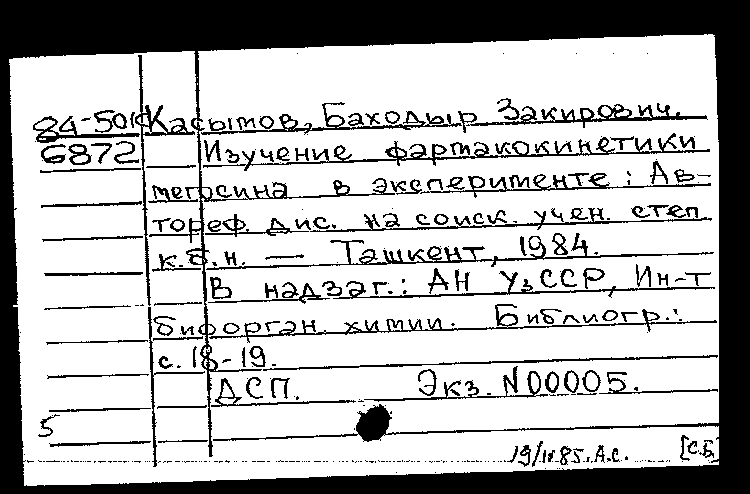 84-501с Касымов, Баходыр Закирович.
6872 Изучение фармакокинетики
мегосина в эксперименте: Ав-
тореф. дис. на соиск. учен. степ
к.б.н. — Ташкент, 1984.
В надзаг.: АН УзССР, Ин-т
биоорган. химии. Библиогр.:
с. 18-19.
ДСП. Экз. N00005.
5
19/IV.85. А.С. [С.Б.